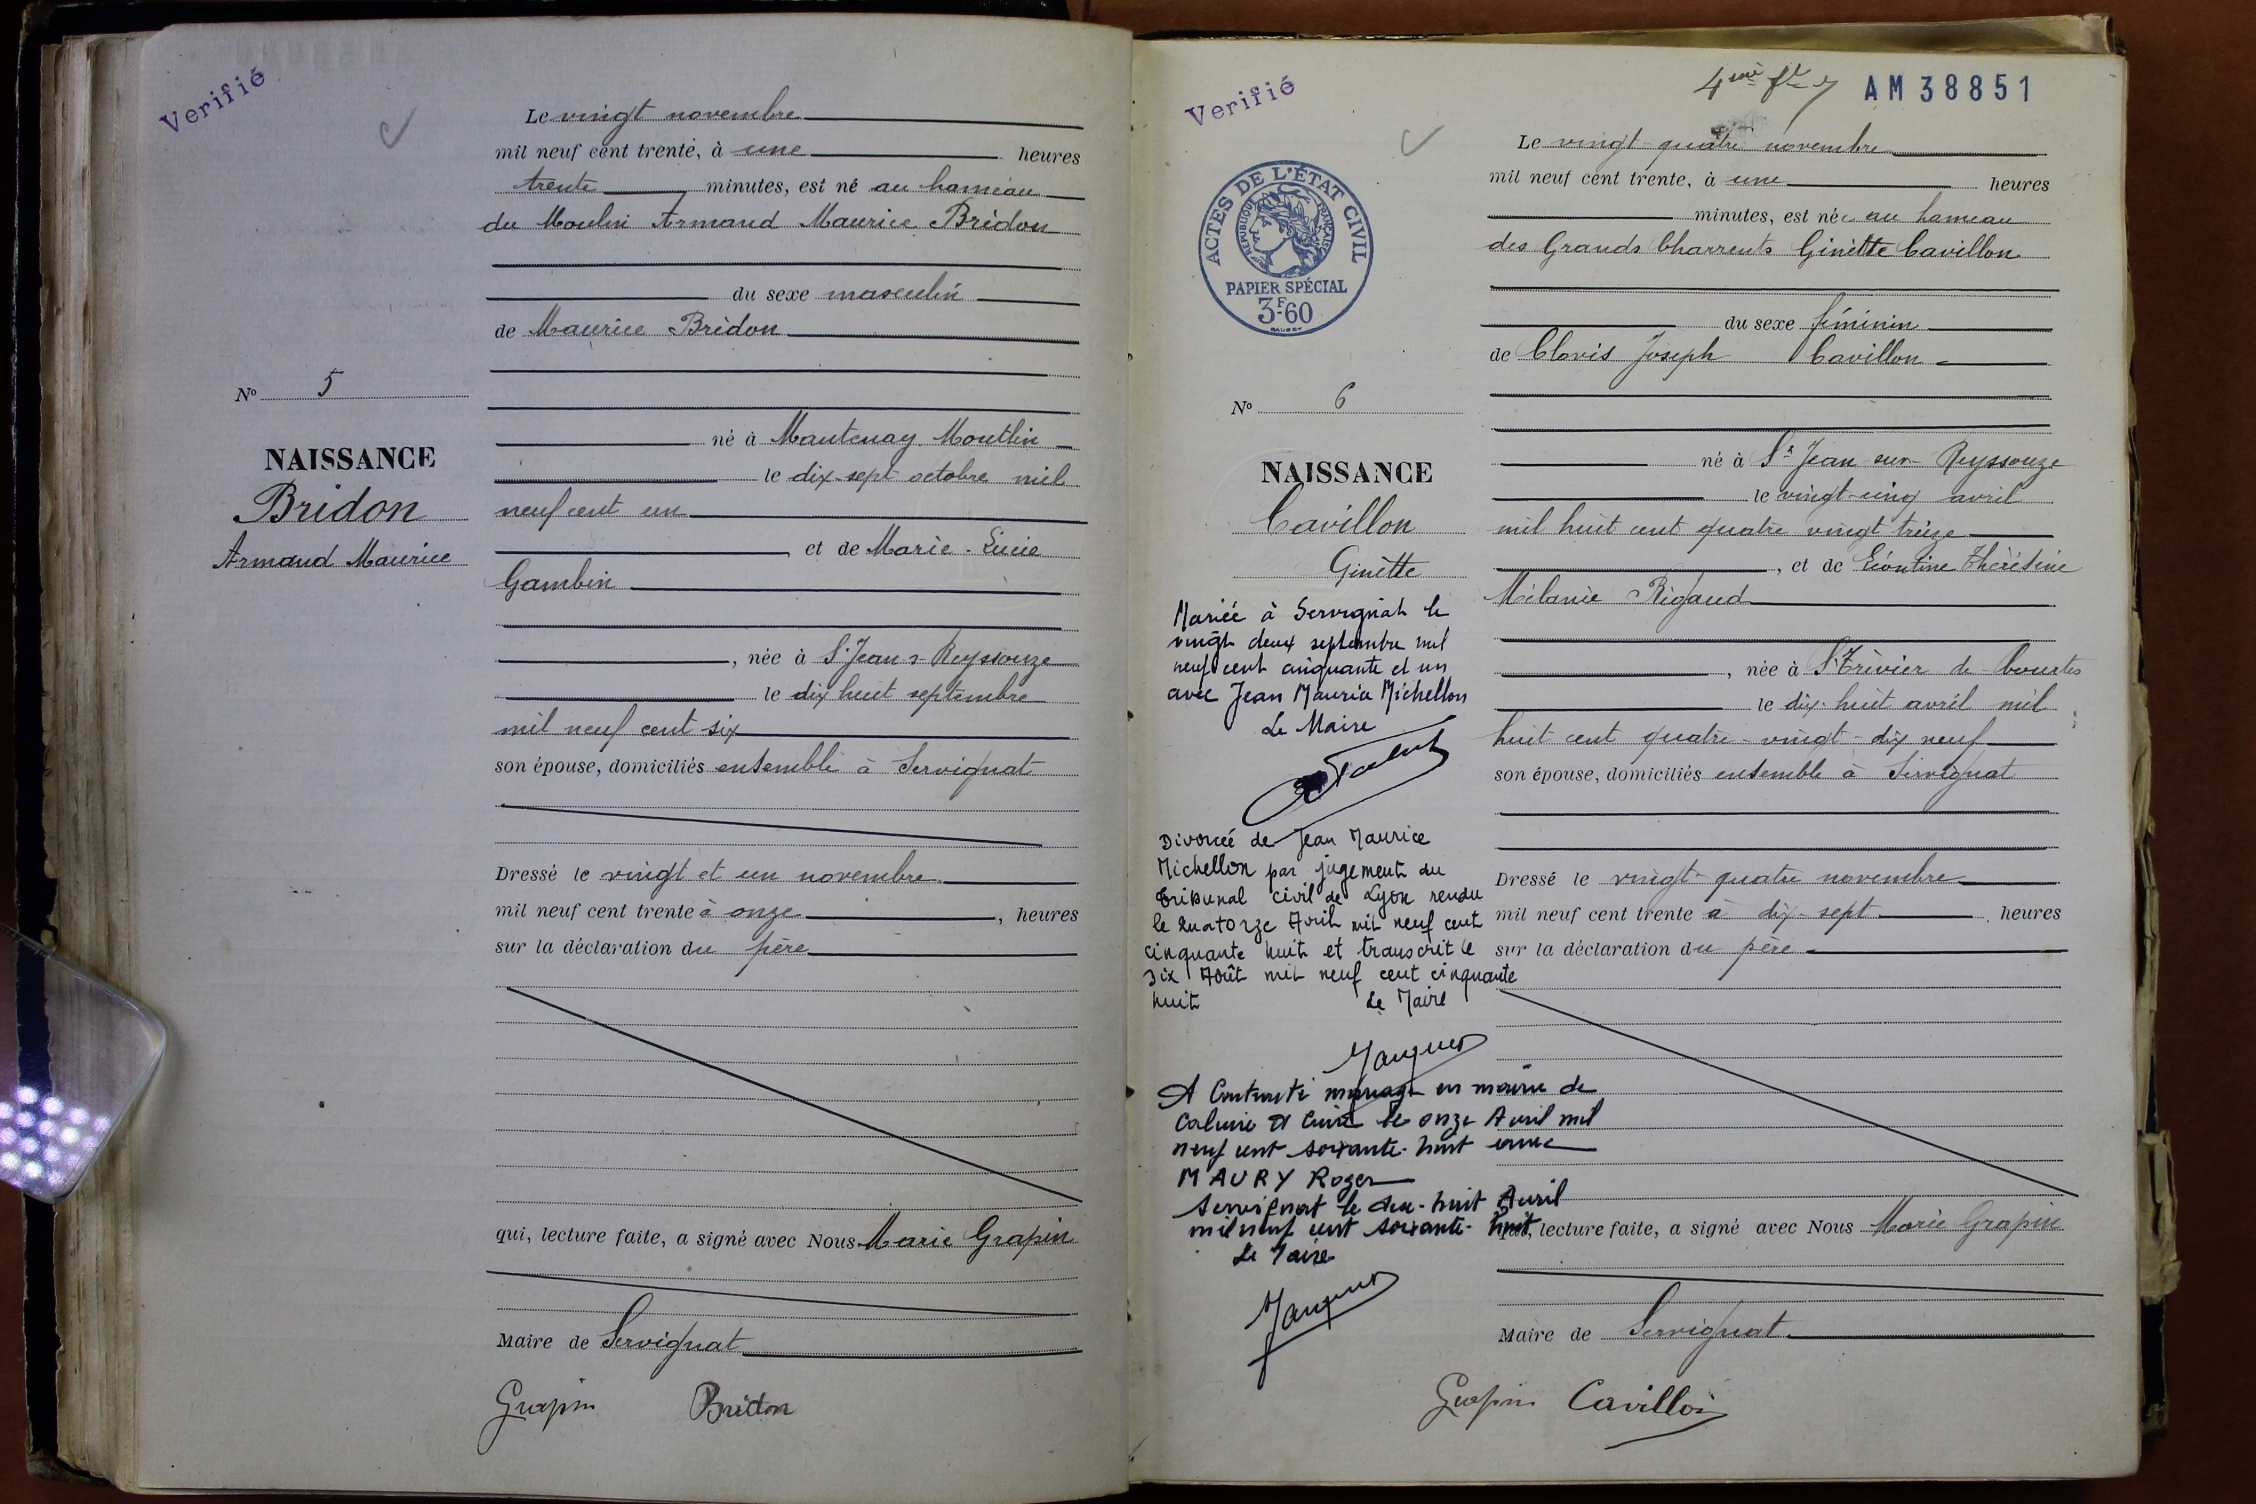 Verifié
Le vingt novembre
mil neuf cent trente, à une heures
trente minutes, est né au hameau
du Moulin Armand Maurice Bridon
du sexe masculin
de Maurice Bridon
né à Mantenay Montlin
le dix-sept octobre mil
neuf cent un
et de Marie-Lucie
Gambin
, née à St Jean s Reyssouze
le dix huit septembre
mil neuf cent six
son épouse, domiciliés ensemble à Servignat
Dressé le vingt et un novembre
mil neuf cent trente à onze, heures
sur la déclaration du père
qui, lecture faite, a signé avec Nous Marie Grapin
Maire de Servignat
Grapin Bridon
No 5
NAISSANCE
Bridon
Armand Maurice
Verifié
AM 38851
ACTES DE L'ÉTAT CIVIL
RÉPUBLIQUE FRANÇAISE
PAPIER SPÉCIAL
3F60
No 6
NAISSANCE
Cavillon
Ginètte
Mariée à Servignat le
vingt deux septembre mil
neuf cent cinquante et un
avec Jean Maurice Michellon
Le Maire
Divorcée de Jean Maurice
Michellon par jugement du
Tribunal civil de Lyon rendu
le Quatorze Avril mil neuf cent
cinquante huit et transcrit le
six Août mil neuf cent cinquante
huit Le Maire
A Contracté mariage en mairie de
Caluire et Cuire le onze Avril mil
neuf cent soixante-huit avec
MAURY Roger
Servignat le dix-huit Avril
mil neuf cent soixante-huit
Le Maire
Le vingt-quatre novembre
mil neuf cent trente, à une heures
minutes, est née au hameau
des Grands Charrents Ginètte Cavillon
du sexe féminin
de Clovis Joseph Cavillon
né à St Jean sur Reyssouze
le vingt-cinq avril
mil huit cent quatre vingt treize
, et de Léontine Thérésine
Mélanie Rigaud
, née à St Trivier de Courtes
le dix-huit avril mil
huit cent quatre-vingt-dix neuf
son épouse, domiciliés ensemble à Servignat
Dressé le vingt-quatre novembre
mil neuf cent trente à dix-sept heures
sur la déclaration du père
qui, lecture faite, a signé avec Nous Marie Grapin
Maire de Servignat
Grapin Cavillon